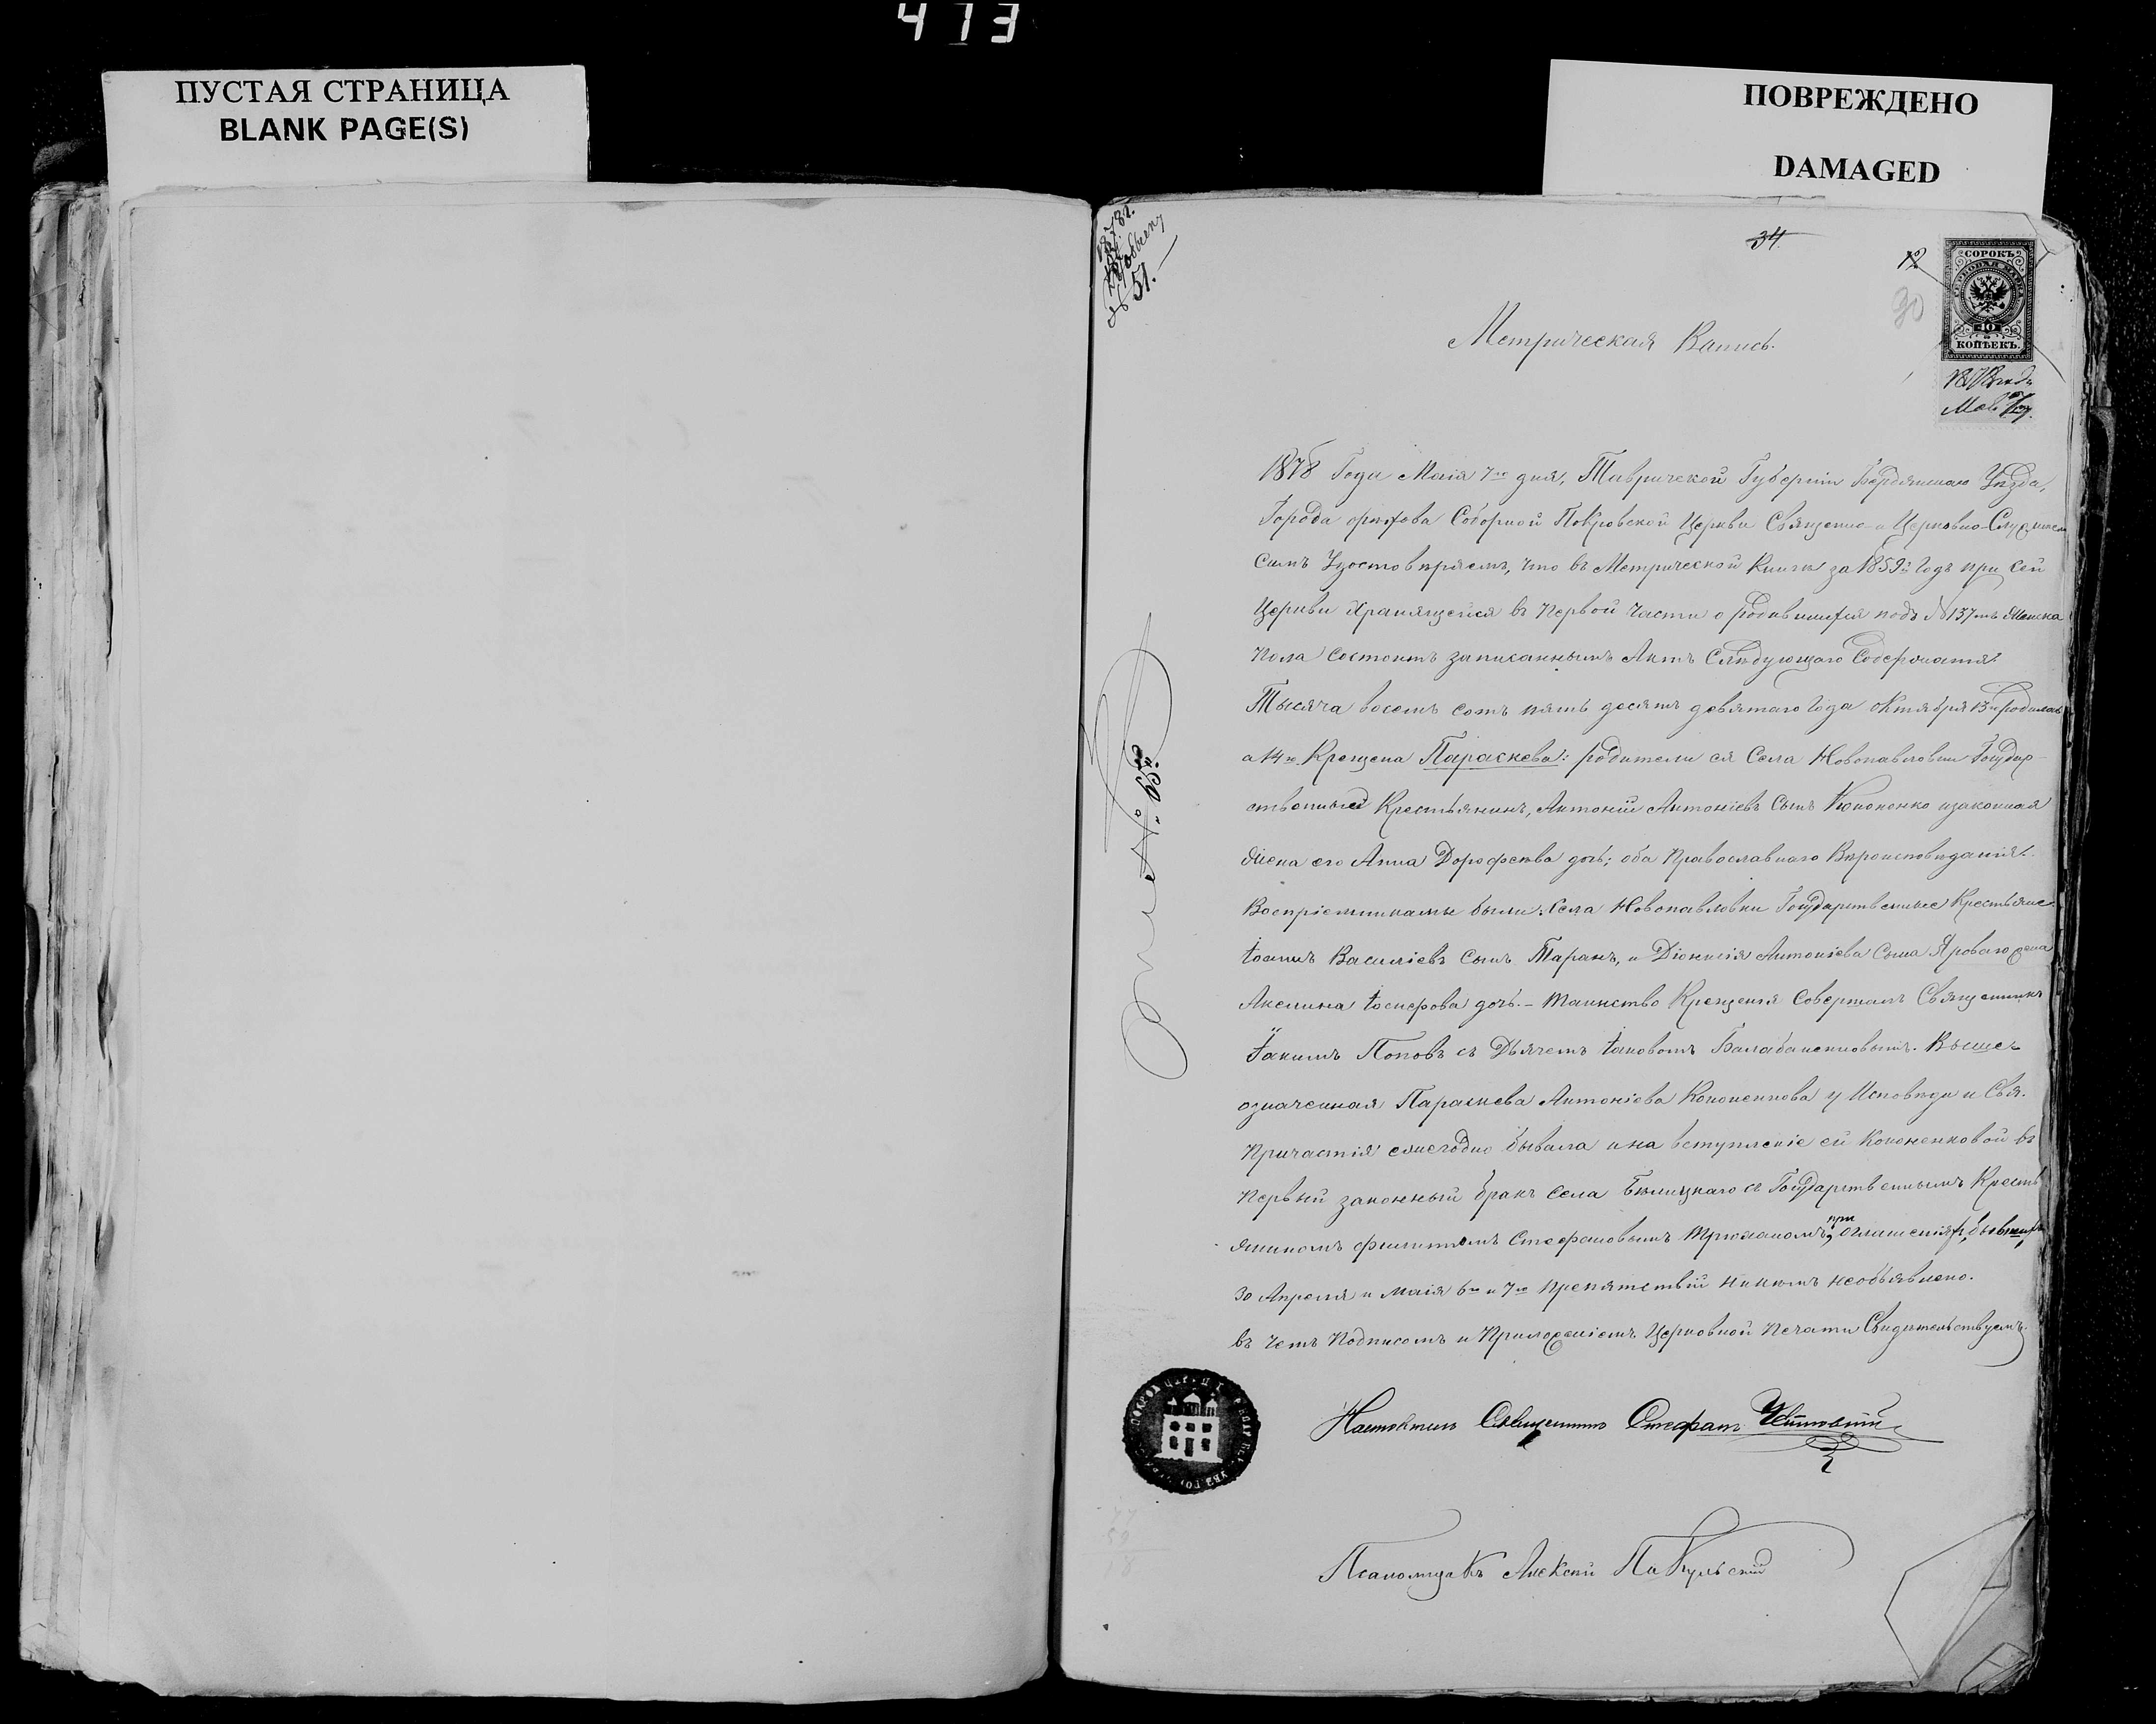 413
ПУСТАЯ СТРАНИЦА
BLANK PAGE(S)
ПОВРЕЖДЕНО
DAMAGED
1878 г.
№ 51.
34
30
СОРОКЪ
ГЕРБОВАЯ МАРКА
40
КОПѢЕКЪ.
Метрическая Запись.
1878 Года Маія 7го дня, Таврической Губерніи Бердянскаго Уѣзда,
Города Орѣхова Соборной Покровской Церкви Священно и Церковно-Служители
Симъ Удостовѣряемъ, что въ Метрической Книгѣ за 1859й Годъ при сей
Церкви Хранящейся въ Первой Части о родившихся подъ №137мъ Женска
Пола Состоитъ записаннымъ Актъ Слѣдующаго Содержанія:
Тысяча восемъ сотъ пять десятъ девятаго Года октября 13го родилась
а 14го Крещена Параскева: родители ея Села Новопавловки Государ-
ственный Крестьянинъ, Антоній Антоніевъ Сынъ Кононенко и законная
Жена его Анна Дорофеева дочь; оба Православнаго Вѣроисповѣданія.
Воспріемниками были: Села Новопавловки Государственные Крестьяне
Іоаннъ Василіевъ Сынъ Таранъ, и Діонисія Антоніева Сына Яроваго жена
Акилина Іосифова дочь. – Таинство Крещенія Совершалъ Священникъ
Іакимъ Поповъ съ Дьячемъ Іаковомъ Балабаненковымъ. Выше-
означенная Параскева Антоніева Кононенкова у Исповѣди и Свя.
Причастія ежегодно бывала и на вступленіе ей Кононенковой въ
Первый законный бракъ села Бѣлицкаго съ Государственнымъ Кресть
яниномъ Филиппомъ Стефановымъ Трюханомъ, при оглашеніяхъ, бывшихъ
30 Апреля и маія 6го и 7го Препятствій никѣмъ необъявлено.
въ чемъ Подписомъ и Приложеніемъ Церковной Печати Свидѣтельствуемъ.
№ 59.
Настоятель Священникъ Стефанъ
Псаломщикъ Алексій